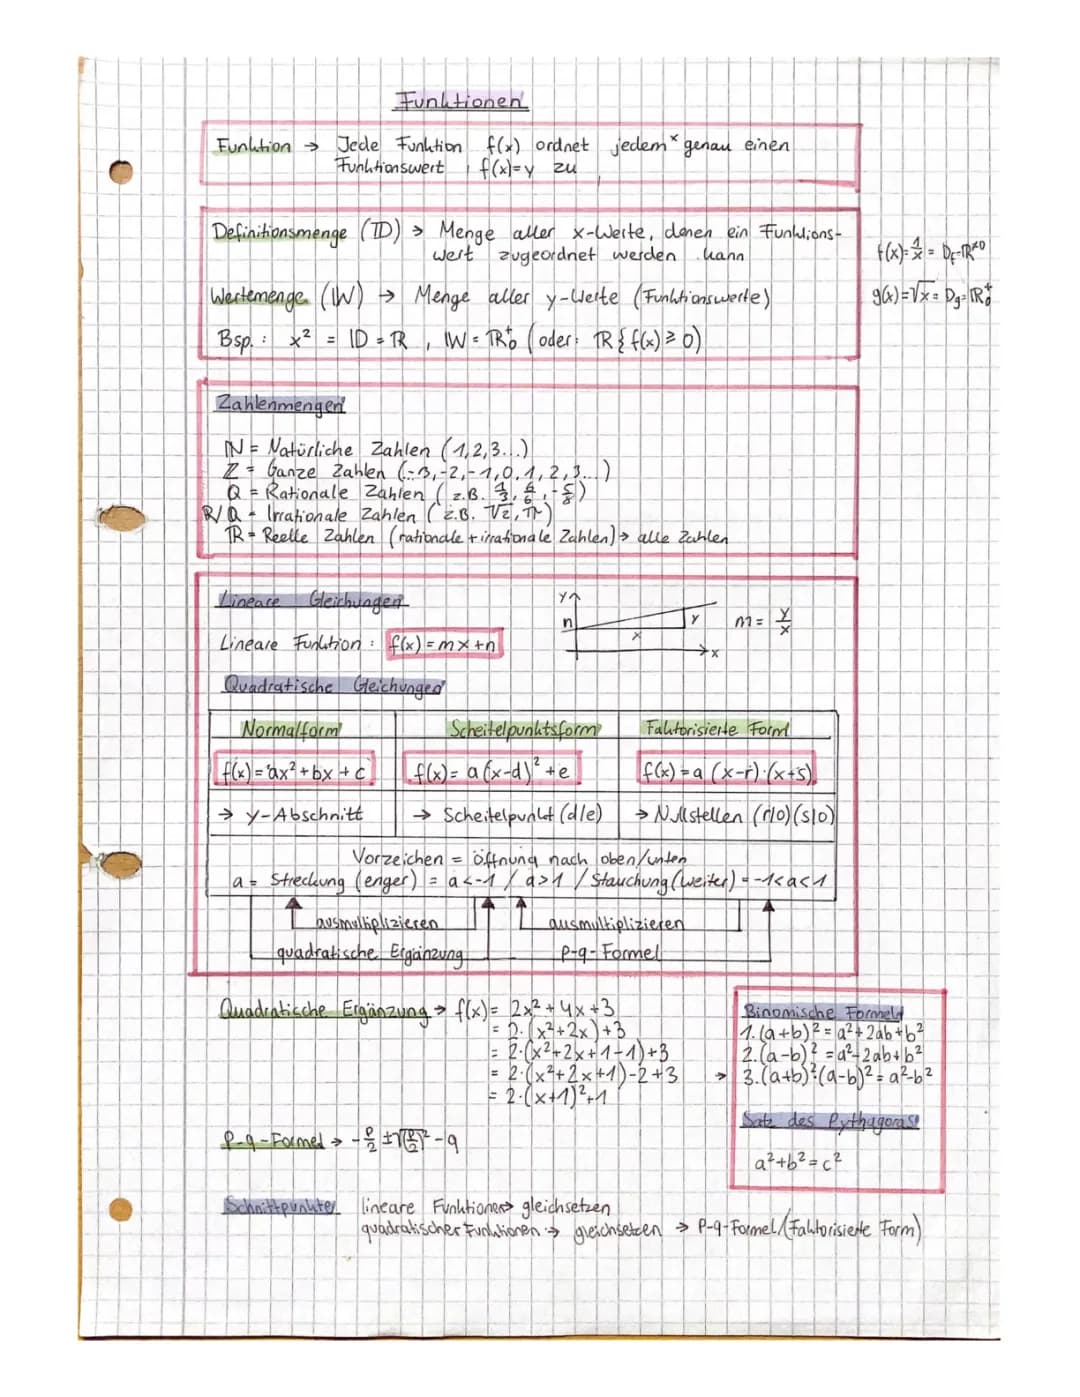 Funktionen
Funktion → Jede Funktion f(x) ordnet jedem x genau einen
Funktionswert f(x)=y zu
Definitionsmenge (ID) → Menge aller x-Werte, denen ein Funktions-
wert zugeordnet werden kann
f(x)=1/x = Df=ℝ≠0
Wertemenge (W) → Menge aller y-Werte (Funktionswerte)
g(x)=√x = Dg=ℝ₀⁺
Bsp.: x² = ID = ℝ, W = ℝ₀⁺ (oder: ℝ{f(x) ≥ 0)
Zahlenmengen
ℕ = Natürliche Zahlen (1,2,3...)
Z = Ganze Zahlen (-3,-2,-1,0,1,2,3...)
Q = Rationale Zahlen (z.B. 1/3, 6/6, -5/8)
R/Q = Irrationale Zahlen (z.B. √2, π)
ℝ = Reelle Zahlen (rationale + irrationale Zahlen) → alle Zahlen
Lineare Gleichungen
y
n
y
x
x
m = y/x
Lineare Funktion: f(x) = mx+n
Quadratische Gleichungen
Normalform Scheitelpunktsform Faktorisierte Form
f(x) = ax² + bx + c f(x) = a(x-d)² + e f(x) = a(x-r)·(x+s)
→ y-Abschnitt → Scheitelpunkt (d/e) → Nullstellen (r/0)(s/0)
Vorzeichen = Öffnung nach oben/unten
a = Streckung (enger) = a<-1 / a>1 / Stauchung (weiter) = -1<a<1
ausmultiplizieren ausmultiplizieren
quadratische Ergänzung p-q-Formel
Quadratische Ergänzung → f(x) = 2x² + 4x + 3
= 2·(x²+2x)+3
= 2·(x²+2x+1-1)+3
= 2·(x²+2x+1)-2+3
= 2·(x+1)²+1
Binomische Formeln
1. (a+b)² = a²+2ab+b²
2. (a-b)² = a²-2ab+b²
→ 3. (a+b)²·(a-b)² = a²-b²
Satz des Pythagoras
a²+b²=c²
P-q-Formel → -p/2 ±√(p/2)² -q
Schnittpunkte lineare Funktionen → gleichsetzen
quadratischer Funktionen → gleichsetzen → P-q-Formel/(Faktorisierte Form)